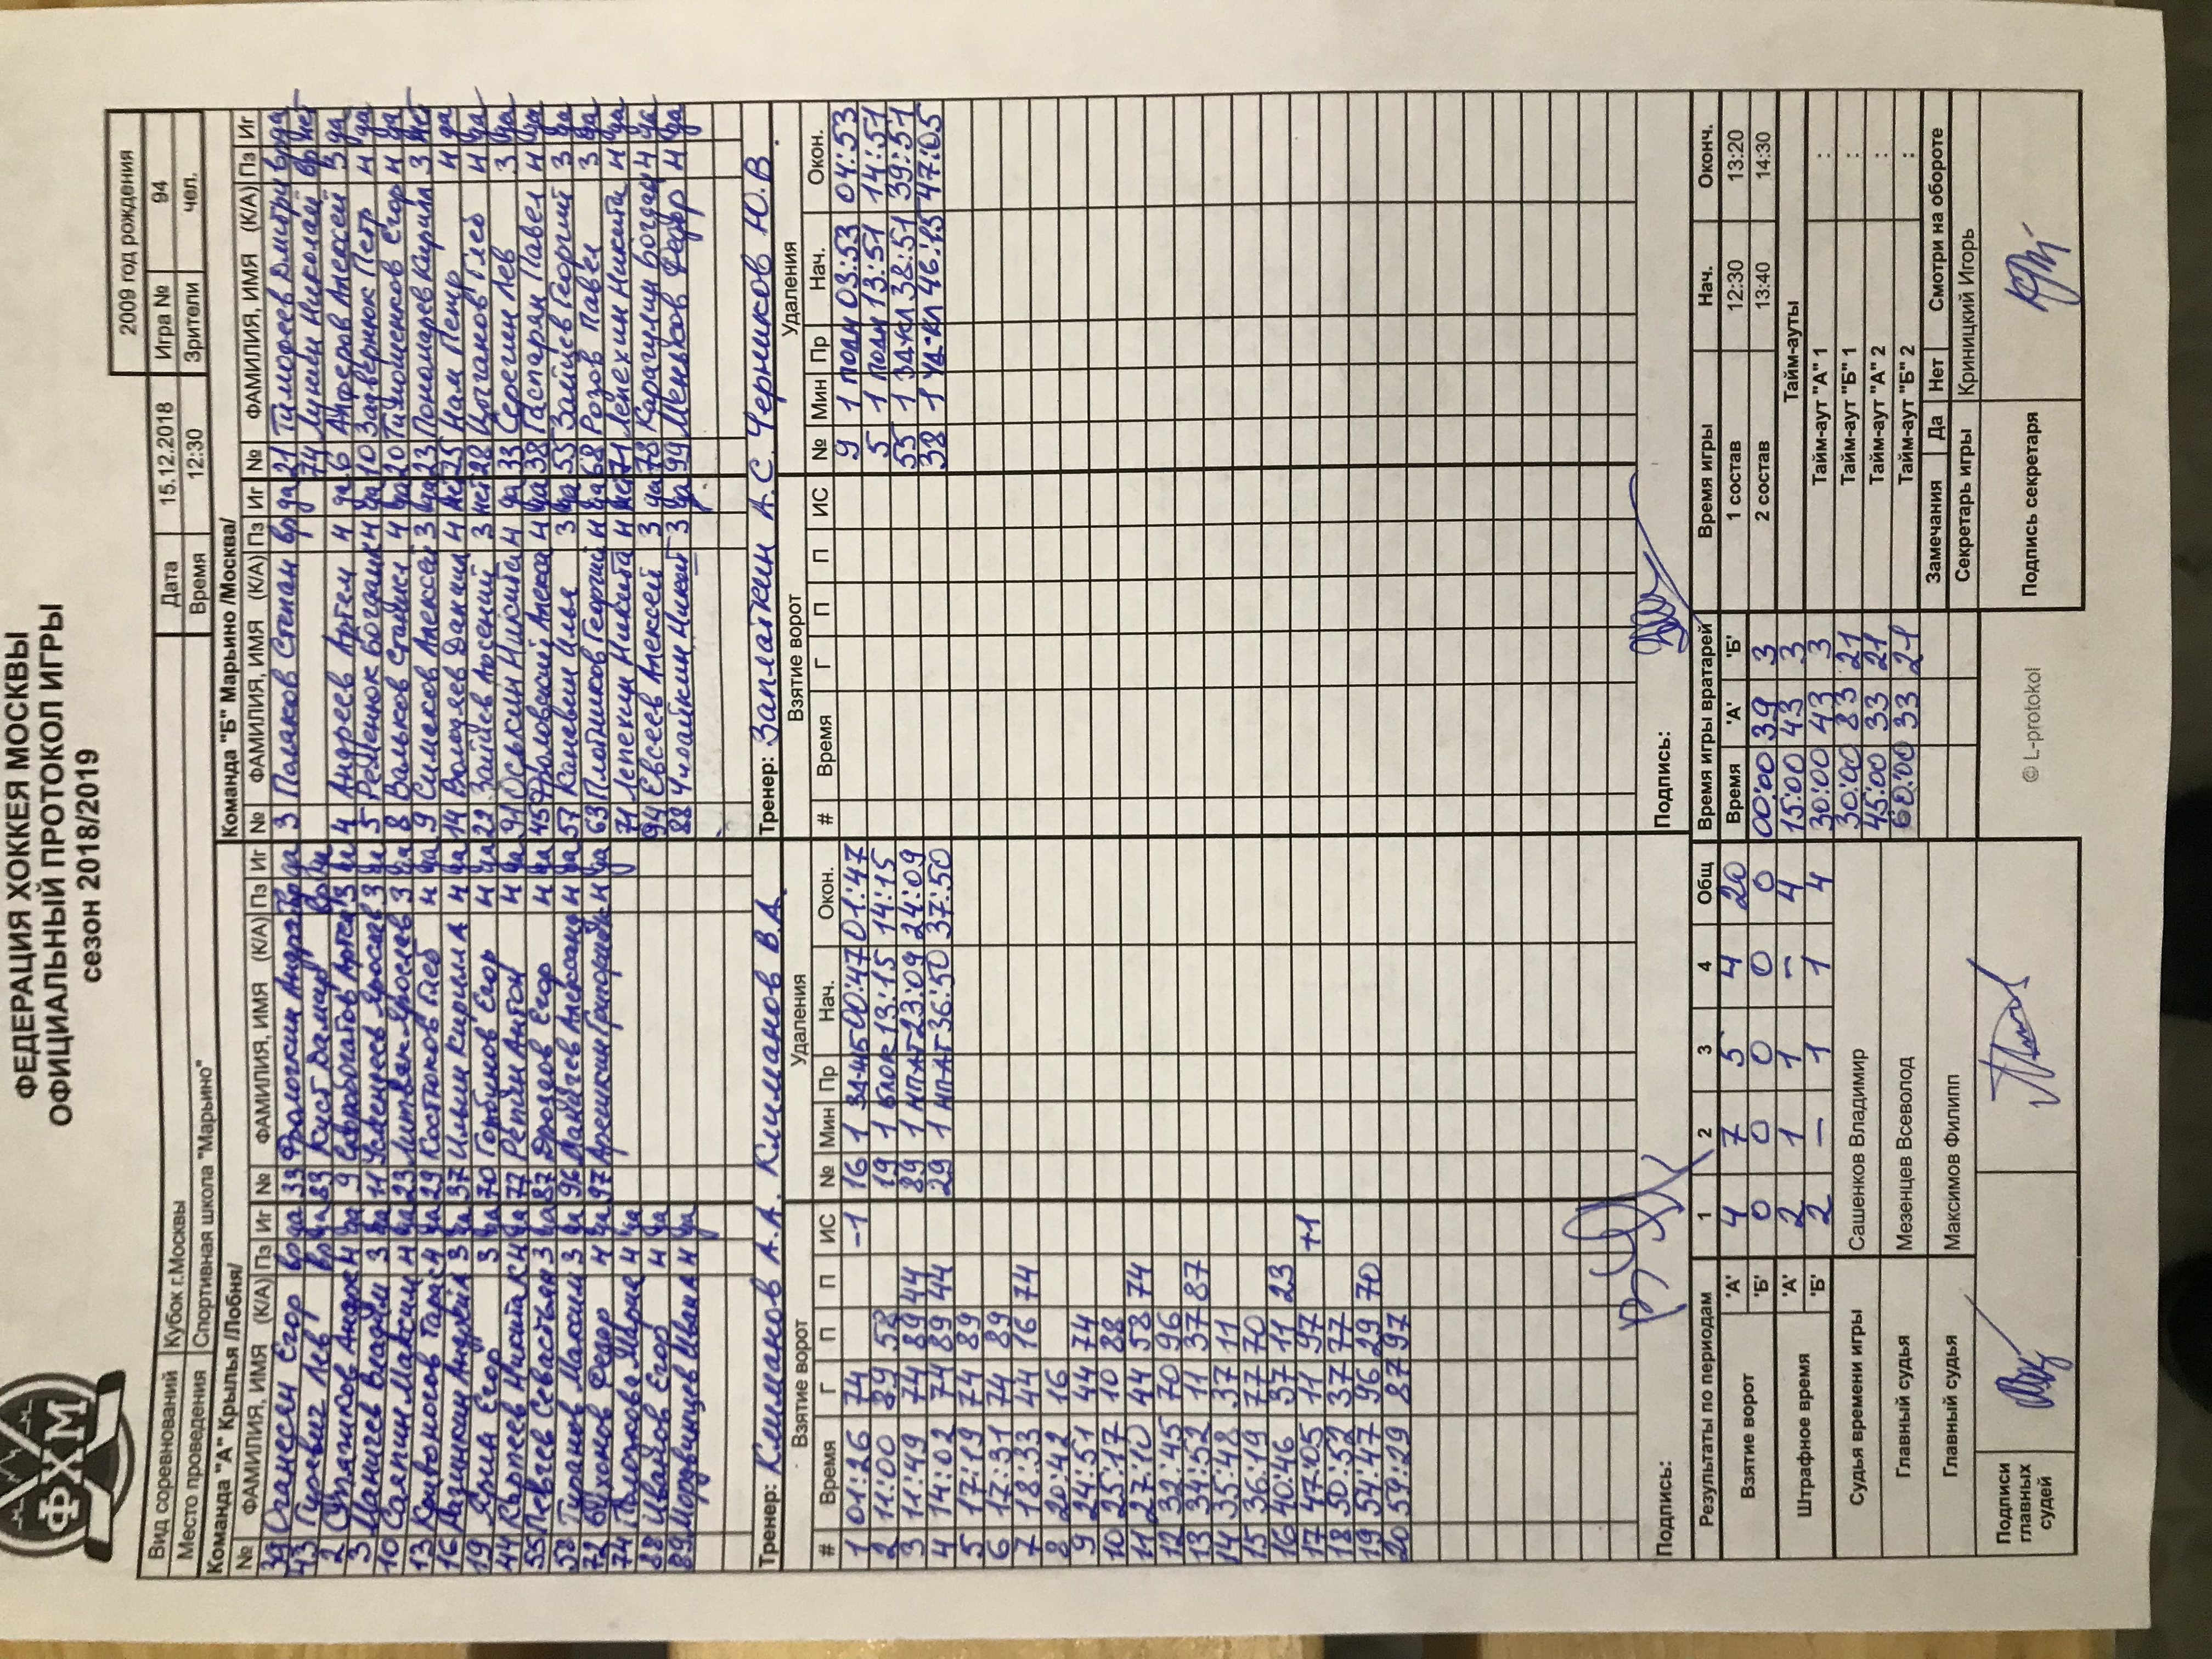 ФЕДЕРАЦИЯ ХОККЕЯ МОСКВЫ
ОФИЦИАЛЬНЫЙ ПРОТОКОЛ ИГРЫ
сезон 2018/2019
ФХМ
2009 год рождения
Вид соревнований Кубок г.Москвы Дата 15.12.2018 Игра № 94
Место проведения Спортивная школа "Марьино" Время 12:30 Зрители чел.
Команда "А" Крылья /Лобня/ Команда "Б" Марьино /Москва/
№ ФАМИЛИЯ, ИМЯ (К/А) Пз Иг № ФАМИЛИЯ, ИМЯ (К/А) Пз Иг № ФАМИЛИЯ, ИМЯ (К/А) Пз Иг № ФАМИЛИЯ, ИМЯ (К/А) Пз Иг
39 Оганесян Егор вр да 33 вр да 3 Поляков Степан вр да 21 Тимофеев Дмитрий вр да
43 Гуревич Лев вр да 83 Куст Дамир вр да 74 Лунин Николай вр нет
2 н да 9 Артем 3 да 4 Андреев Артем н да 6 Алексей 3 да
3 Манич Владим 3 да 11 Ярослав 3 да 5 Ременюк Богдан н да 10 Задвернюк Петр н да
10 Саяпин Максим н да 23 Литвяк Ярослав 3 да 8 Вальков н да 20 Тимошенков Егор н да
13 Кривоногов Тарас н да 29 Костюков Глеб н да 9 Симаков Алексей 3 да 23 Пономарев Кирилл 3 нет
16 Андрей 3 да 37 Ильин Кирилл А н да 14 Даниил н нет 25 Нам Петр н да
19 Ярин Егор 3 да 70 Горбунов Егор н да 22 Зайцев Арсений 3 нет 28 Цыганов Глеб н да
44 Карпеев Никита К н да 77 Репин Антон н да 91 Оськин Никита н да 33 Серегин Лев 3 да
55 Певцев Севастьян 3 да 87 Дроздов Егор н да 45 н да 38 Гаспарян Павел н да
58 Туранов Максим 3 да 96 Александ н да 57 Каневец Илья 3 да 55 Зайцев Георгий 3 да
72 Федор н да 97 Арешкин Григорий н да 63 Плотников Георгий н да 68 Розов Павел 3 да
74 Мария н да 71 Лепехин Никита н нет 71 Лепехин Никита н да
88 Иванов Егор н да 94 Евсеев Алексей 3 да 78 Карагулин Богдан н да
89 Мордвинцев Иван А н да 88 Чилайкин Никит 3 да 99 Меньков Федор н да
Тренер: Климанов А.А. Климанов В.А. Тренер: Заплаткин А.С. Черников Ю.В.
Взятие ворот Удаления Взятие ворот Удаления
# Время Г П П ИС № Мин Пр Нач. Окон. # Время Г П П ИС № Мин Пр Нач. Окон.
1 01:26 74 -1 16 1 ЗД-КЛ 00:47 01:47 9 1 ПОДН 03:53 04:53
2 11:00 89 58 19 1 БЛОК 13:15 14:15 5 1 ПОДН 13:51 14:51
3 11:49 74 89 44 89 1 НП-АТ 23:09 24:09 55 1 ЗД-КЛ 38:51 39:51
4 14:02 74 89 44 29 1 НП-АТ 36:50 37:50 38 1 УД-КЛ 46:15 47:05
5 17:19 74 89
6 17:31 74 89
7 18:33 44 16 74
8 20:42 16
9 24:51 44 74
10 25:17 10 88
11 27:10 44 58 74
12 32:45 70 96
13 34:52 11 37 87
14 35:48 37 11
15 36:19 77 70
16 40:46 37 11 23
17 47:05 11 97 +1
18 50:52 37 77
19 54:47 96 29 70
20 59:29 87 97
Подпись: Подпись:
Результаты по периодам 1 2 3 4 Общ Время игры вратарей Время игры Нач. Оконч.
Взятие ворот 'А' 4 7 5 4 20 Время 'А' 'Б' 1 состав 12:30 13:20
'Б' 0 0 0 0 0 00:00 39 3 2 состав 13:40 14:30
Штрафное время 'А' 2 1 1 - 4 15:00 43 3 Тайм-ауты
'Б' 2 - 1 1 4 30:00 43 3 Тайм-аут "А" 1 :
Судья времени игры Сашенков Владимир 30:00 83 21 Тайм-аут "Б" 1 :
45:00 33 21 Тайм-аут "А" 2 :
Главный судья Мезенцев Всеволод 60:00 33 21 Тайм-аут "Б" 2 :
Замечания Да Нет Смотри на обороте
Главный судья Максимов Филипп Секретарь игры Криницкий Игорь
Подписи главных судей © L-protokol Подпись секретаря